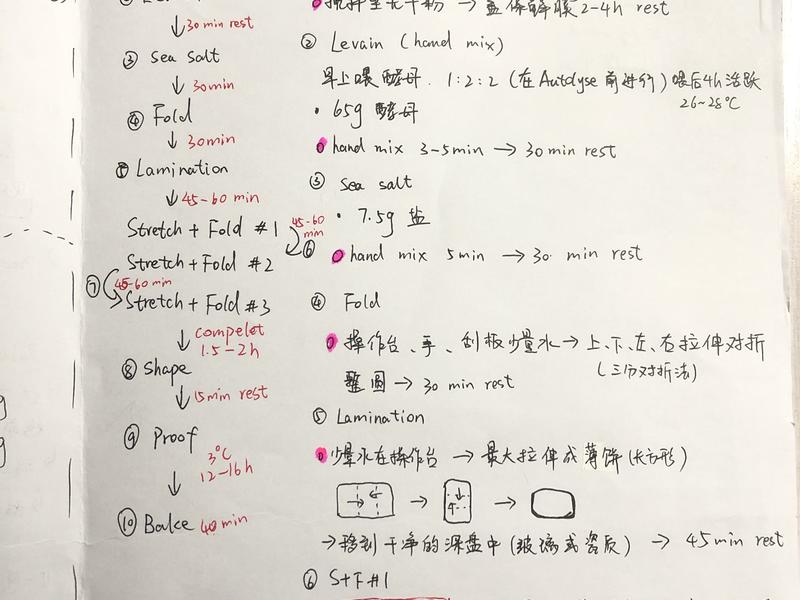 30 min rest
③ Sea Salt
30min
④ Fold
30min
⑤ Lamination
45-60 min
Stretch + Fold #1
45-60 min
⑥
Stretch + Fold #2
⑦ 45-60 min
Stretch + Fold #3
compelet
1.5-2h
⑧ Shape
15min rest
⑨ Proof
3°C
12-16h
⑩ Bake 40min
搅拌至无干粉 → 盖保鲜膜 2-4h rest
② Levain (hand mix)
早上喂酵母. 1:2:2 (在Autolyse前进行) 喂后4h活跃
26-28°C
· 65g 酵母
hand mix 3-5min → 30 min rest
③ Sea salt
· 7.5g 盐
hand mix 5min → 30 min rest
④ Fold
操作台、手、刮板少量水 → 上、下、左、右拉伸对折
(三分对折法)
整圆 → 30 min rest
⑤ Lamination
少量水在操作台 → 最大拉伸成薄饼(长方形)
→ 移到干净的深盘中(玻璃或瓷质) → 45min rest
⑥ S+F#1